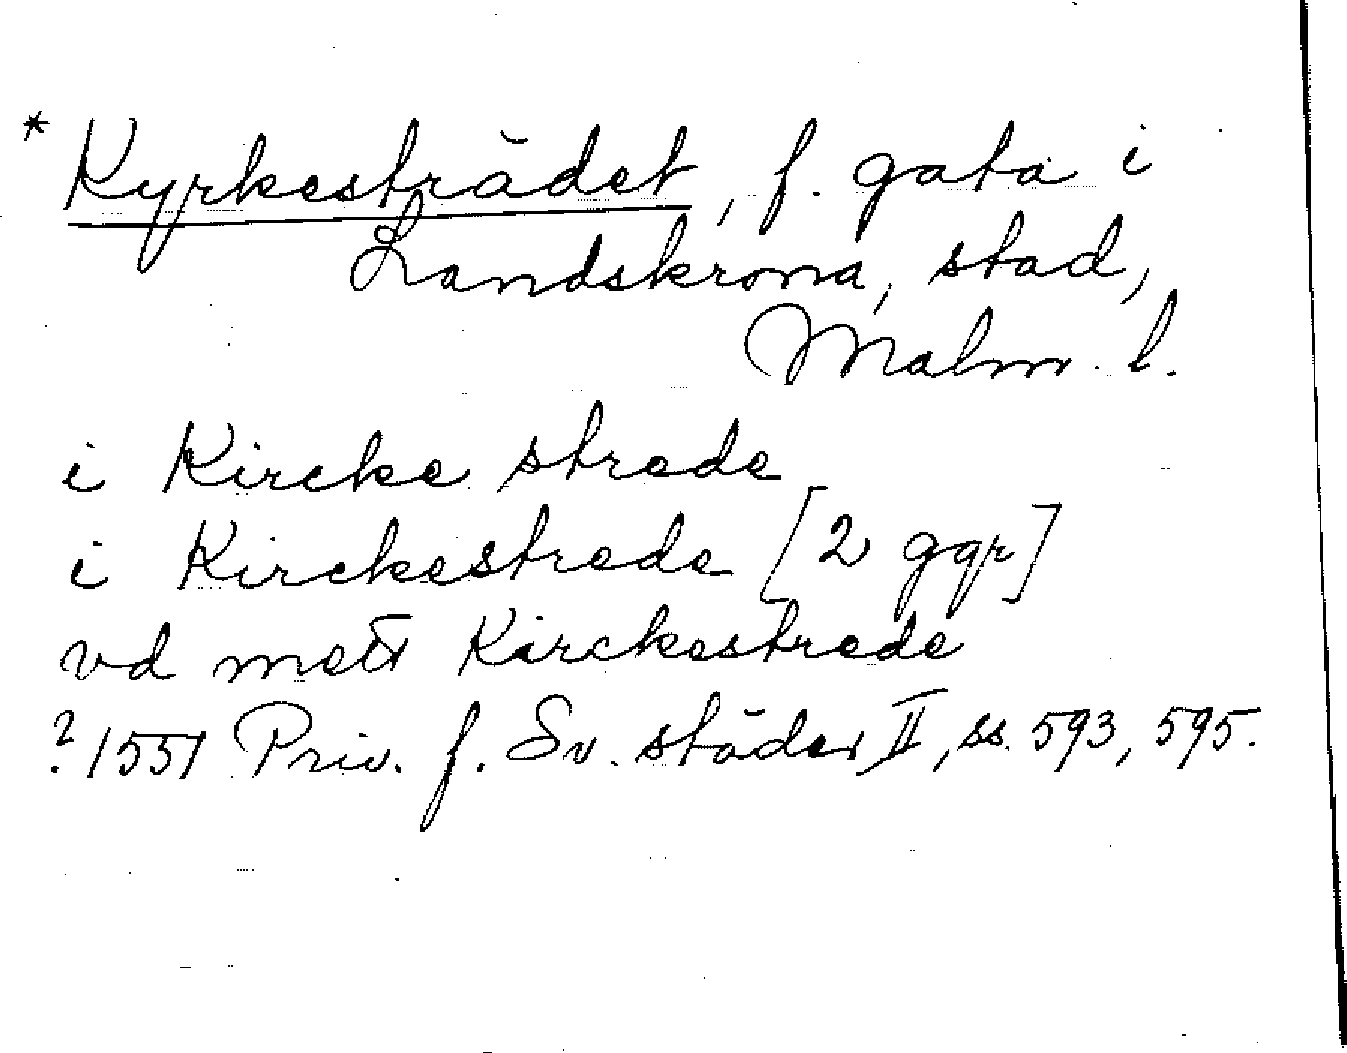 * Kyrkesträdet, f. gata i
Landskrona, stad,
Malm. l.
i Kircke strede
i Kirckestrede [2 ggr]
vd mett Kirckestrede
? 1551 Priv. f. Sv. städer II, ss. 593, 595.